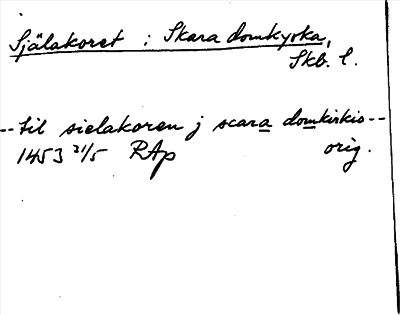 Själakoret : Skara domkyrka,
Skb. l.
-- til sielakoren j scara domkirkio --
1453 21/5 RAp orig.